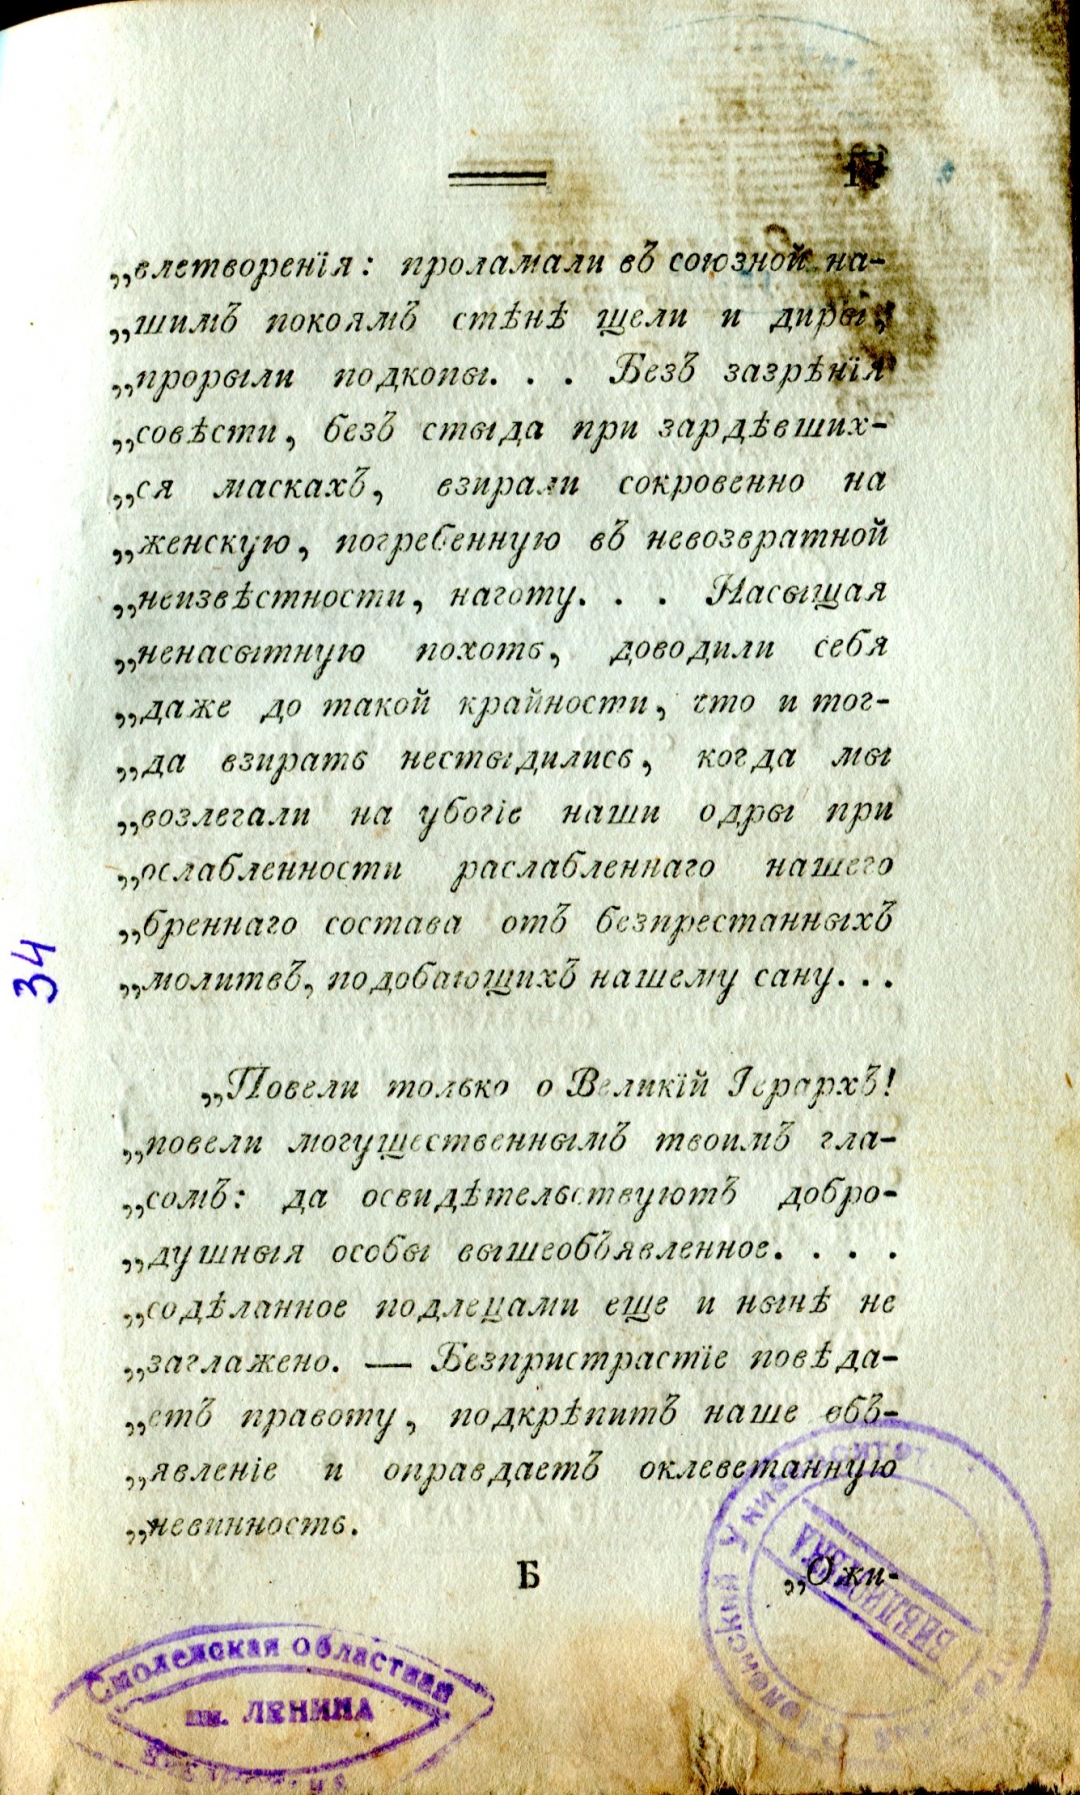 „влетворенія: проламали въ союзной на-
„шимъ покоямъ стѣнѣ щели и диры,
„прорыли подкопы. . . Безъ зазрѣнія
„совѣсти, безъ стыда при зардѣвших-
„ся маскахъ, взирали сокровенно на
„женскую, погребенную въ невозвратной
„неизвѣстности, наготу. . . Насыщая
„ненасытную похоть, доводили себя
„даже до такой крайности, что и тог-
„да взирать нестыдились, когда мы
„возлегали на убогіе наши одры при
„ослабленности раслабленнаго нашего
„бреннаго состава отъ безпрестанныхъ
„молитвъ, подобающихъ нашему сану. . .
34
„Повели только о Великій Іерархъ!
„повели могущественнымъ твоимъ гла-
„сомъ: да освидѣтельствуютъ добро-
„душныя особы вышеобъявленное. . . .
„содѣланное подлецами еще и нынѣ не
„заглажено. — Безпристрастіе повѣда-
„етъ правоту, подкрѣпитъ наше объ-
„явленіе и оправдаетъ оклеветанную
„невинность.
Б
„Ожи-
Смоленская областная
им. ЛЕНИНА
БИБЛИОТЕКА